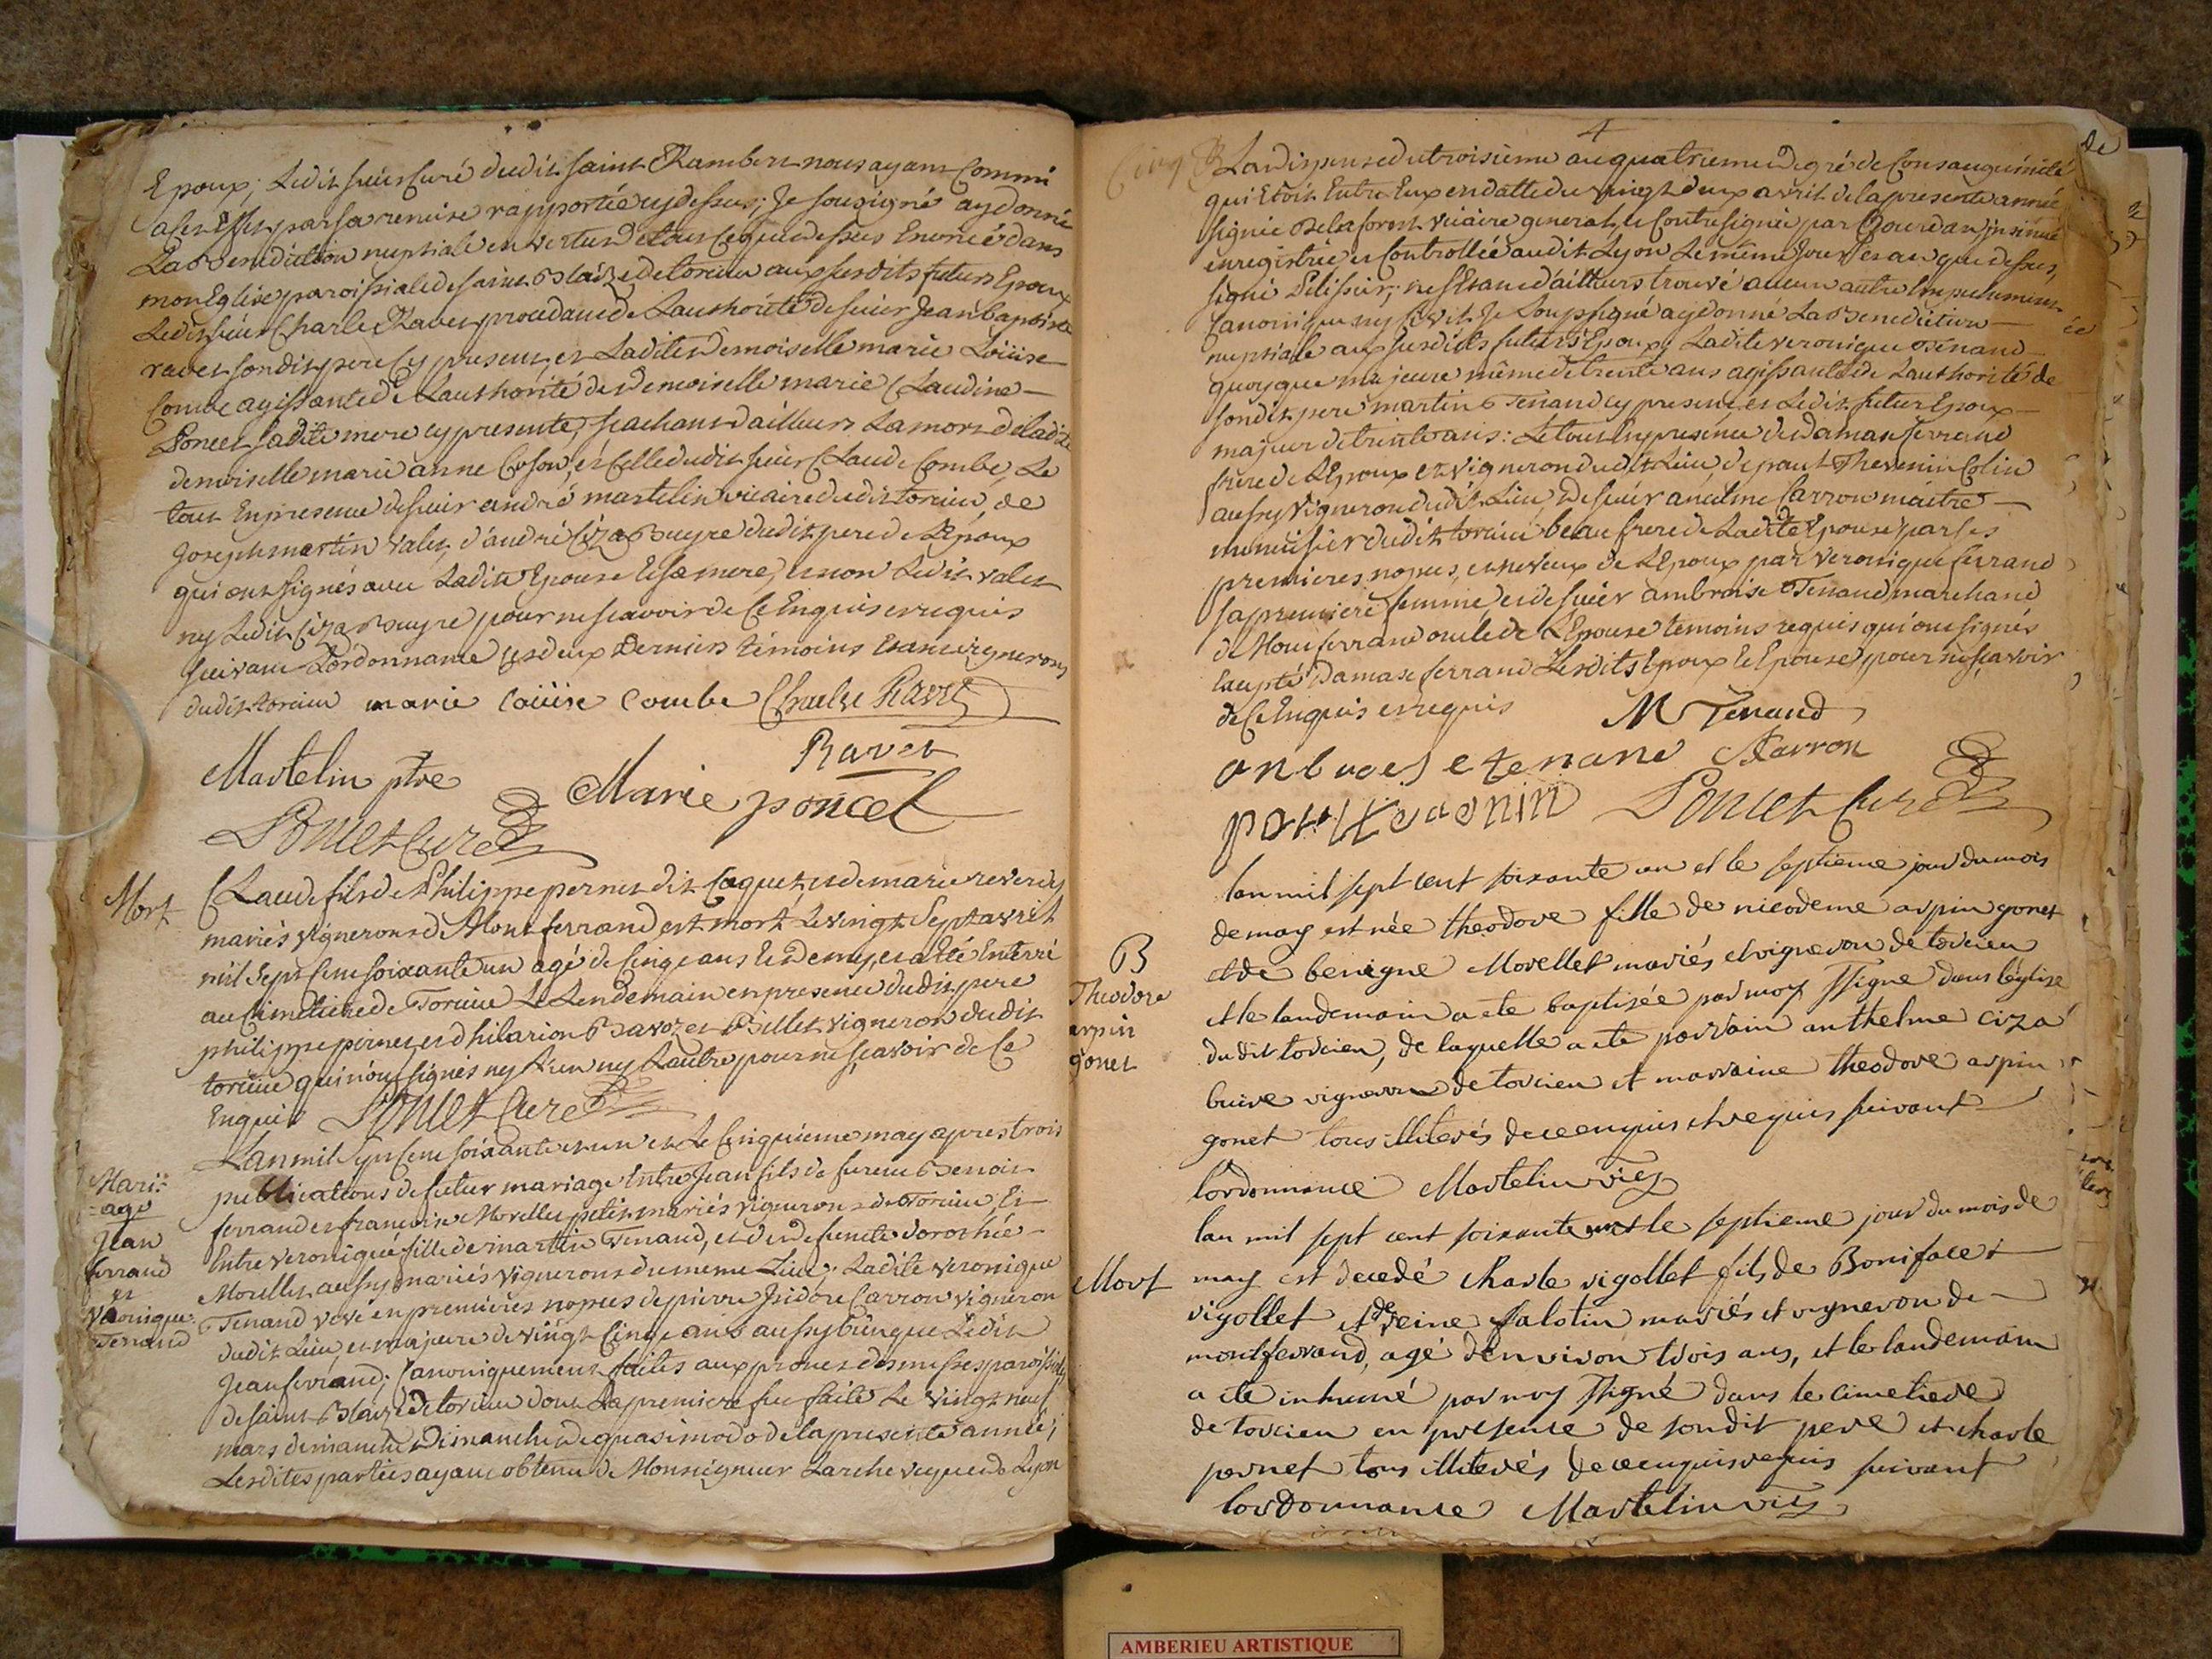 Epoux; Ledit sieur Curé dudit saint Rambert nous ayant Commi
a cet Effet par sa remise rapportée cy dessus; Je sousigné ay donné
La Benediction nuptiale en vertu de tout ce que dessus Enoncé dans
mon Eglise paroissiale de saint Blaize de torcieu aux susdits futurs Epoux
Ledit sieur Charle Ravet procedant de L'authorité de sieur Jean Baptiste
ravet son dit pere Cy present, et Ladite Demoiselle marie Loüise
Combe agissante de L'authorité de Demoiselle marie Claudine
Poncet sa dite mere cy presente, scachant d'ailleurs La mort de ladite
demoiselle marie anne Cozon, et Celle dudit sieur Claude Combe, Le
tout En presence de sieur andré martelin vicaire dudit torcieu, de
Joseph martin valet, d'andré Ciza Buyre dudit pere de L'Epoux
qui ont signés avec Ladite Epouse et sa mere, et non Ledit valet
ny Ledit Ciza Buyre pour ne scavoir de ce Enquis et requis
suivant L'ordonnance ces deux Derniers témoins Etant vignerons
dudit torcieu marie loüise Combe Charle Ravet
Ravet
Martelin ptre Marie poncel
Poncet Curé
Mort
Claude fils de Philippe pernet dit Caquet, et de marie reverdy
mariés vignerons de Mont ferrand est mort Le vingt Sept avril
mil Sept Cent soixante un agé de Cinq ans et Demy, et a Eté Enterré
au Cimetiere de Torcieu Le Lendemain en presence du dit pere
philippe pernet, et d'hilarion Savoz et Billet vigneron dudit
torcieu qui n'ont signés ny L'un ny L'autre pour ne scavoir de Ce
Enquis Poncet Curé
Mari=
=age
Jean
ferrand
et
Veronique
Tenand
L'an mil Sept Cent soixante et un et Le Cinquieme may apres trois
publications de futur mariage Entre Jean fils de furent Benoit
ferrand et françoise Morellet petit mariés vignerons de Torcieu, Et
Entre Veronique fille de martin Tenand, et de defuncte dorothée
Morellet aussy mariés vignerons du meme Lieu; Ladite Veronique
Tenand veve en premieres nopces de pierre Isidore Carron vigneron
dudit Lieu, et majeure de vingt Cinq ans aussy bien que Ledit
Jean ferrand; Canoniquement faites aux prones des messes paroissiales
de saint Blaize de torcieu dont La premiere fut faite Le vingt neuf
mars dimanche Dimanche de quasimodo de la presente année;
Lesdites parties ayant obtenu de Monseigneur L'archeveque de Lyon
4
La dispense du troisieme au quatrieme Degré de Consanguinité
qui Etoit Entre Eux en datte du vingt deux avril de la presente année
signée Delaforest vicaire general, et Contresignée par Gourdan insinué
enregistrée et Controllée audit Lyon Le meme Jour et an que dessus,
signé Pelissier; ne s'Etant d'ailleurs trouvé aucun autre Empechement
Canonique ny Civil Je soussigné ay donné La Benediction
nuptiale aux susdits futurs Epoux, Ladite veronique Tenand
quoyque majeure même de trente ans agissante de L'authorité de
son dit pere martin Tenand cy present, et Ledit futur Epoux
majeur de trente ans: Le tout En presence de damase ferrand
frere de L'Epoux et vigneron dudit Lieu, de paul Thevenin Colin
aussy vigneron dudit Lieu, de sieur anthelme Carron maitre
menuisier dudit torcieu beau frere de Ladite Epouse par ses
premieres nopces, et neveux de L'Epoux par veronique ferrand
sa premiere femme, et de sieur ambroise Tenand marchand
de Mont ferrand oncle de L'Epouse temoins requis qui ont signés
Excepté Damase ferrand Lesdits Epoux et Epouse pour ne scavoir
de Ce Enquis et requis M Tenand
anbroes e tenand Carron
Poncet Curé
B
Theodore
arpin
gonet
lan mil sept cent soixante un et le septieme jour du mois
de may est née theodore fille de nicodeme arpin gonet
et de benigne Morellet mariés et vigneron de torcieu
et le landemain a ete baptisée par moy Ssigné dans leglise
du dit torcieu, de laquelle a ete parrain anthelme ciza
buire vigneron de torcieu et marraine theodore arpin
gonet tous illiterés de ce enquis et requis suivant
lordonnance Martelin vic
Mort
lan mil sept cent soixante un et le septieme jour du mois de
may est decedé charle vigollet fils de Boniface
vigollet et de reine palotin mariés et vigneron de
montferrand, agé denviron trois ans, et le landemain
a ete inhumé par moy Ssigné dans le cimetiere
de torcieu en presence de son dit pere et charle
pernet tous illiterés de ce enquis requis suivant
lordonnance Martelin vic
AMBERIEU ARTISTIQUE